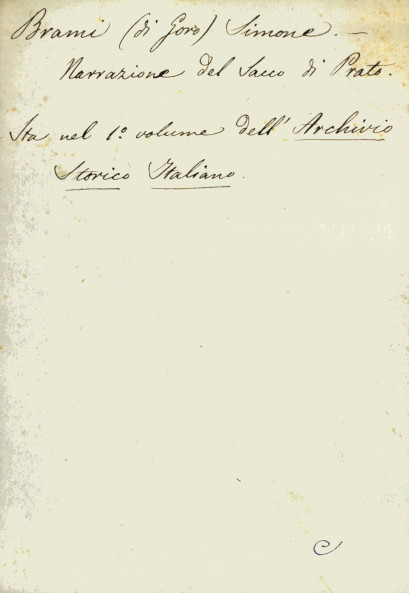 Brami (di Goro) Simone. —
Narrazione del Sacco di Prato.
Sta nel 1º volume dell' Archivio
Storico Italiano.